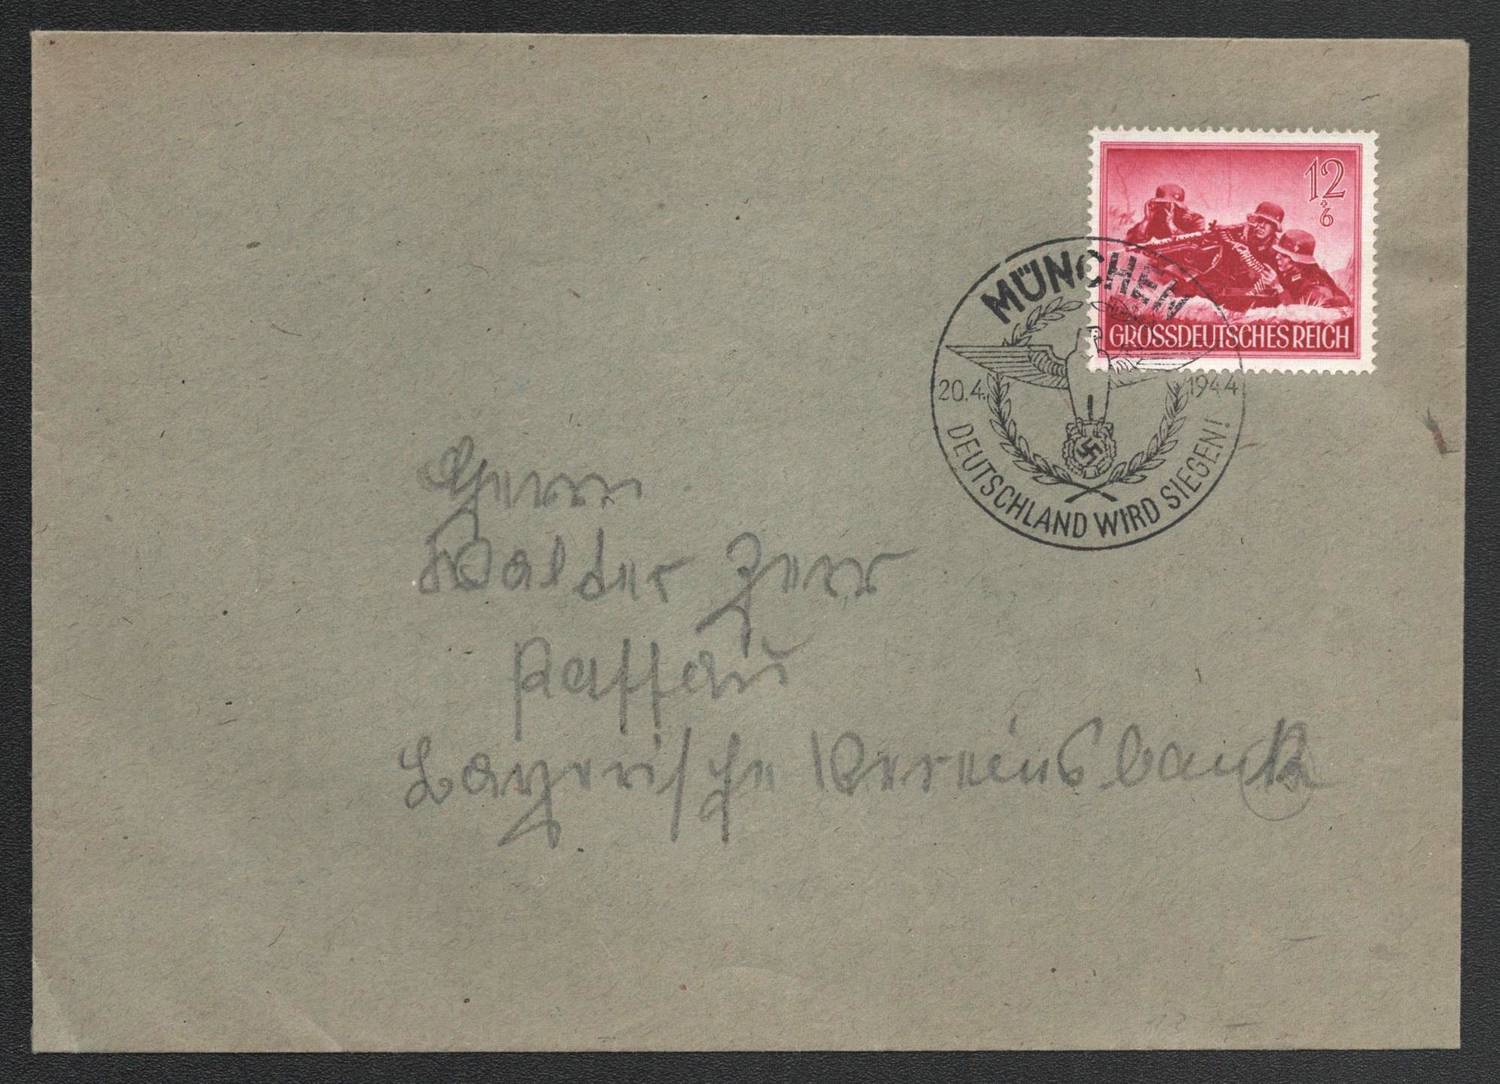 12
+6
GROSSDEUTSCHES REICH
MÜNCHEN
20.4. 1944
DEUTSCHLAND WIRD SIEGEN!
Herrn
Walder
Passau
Bayerische Vereinsbank